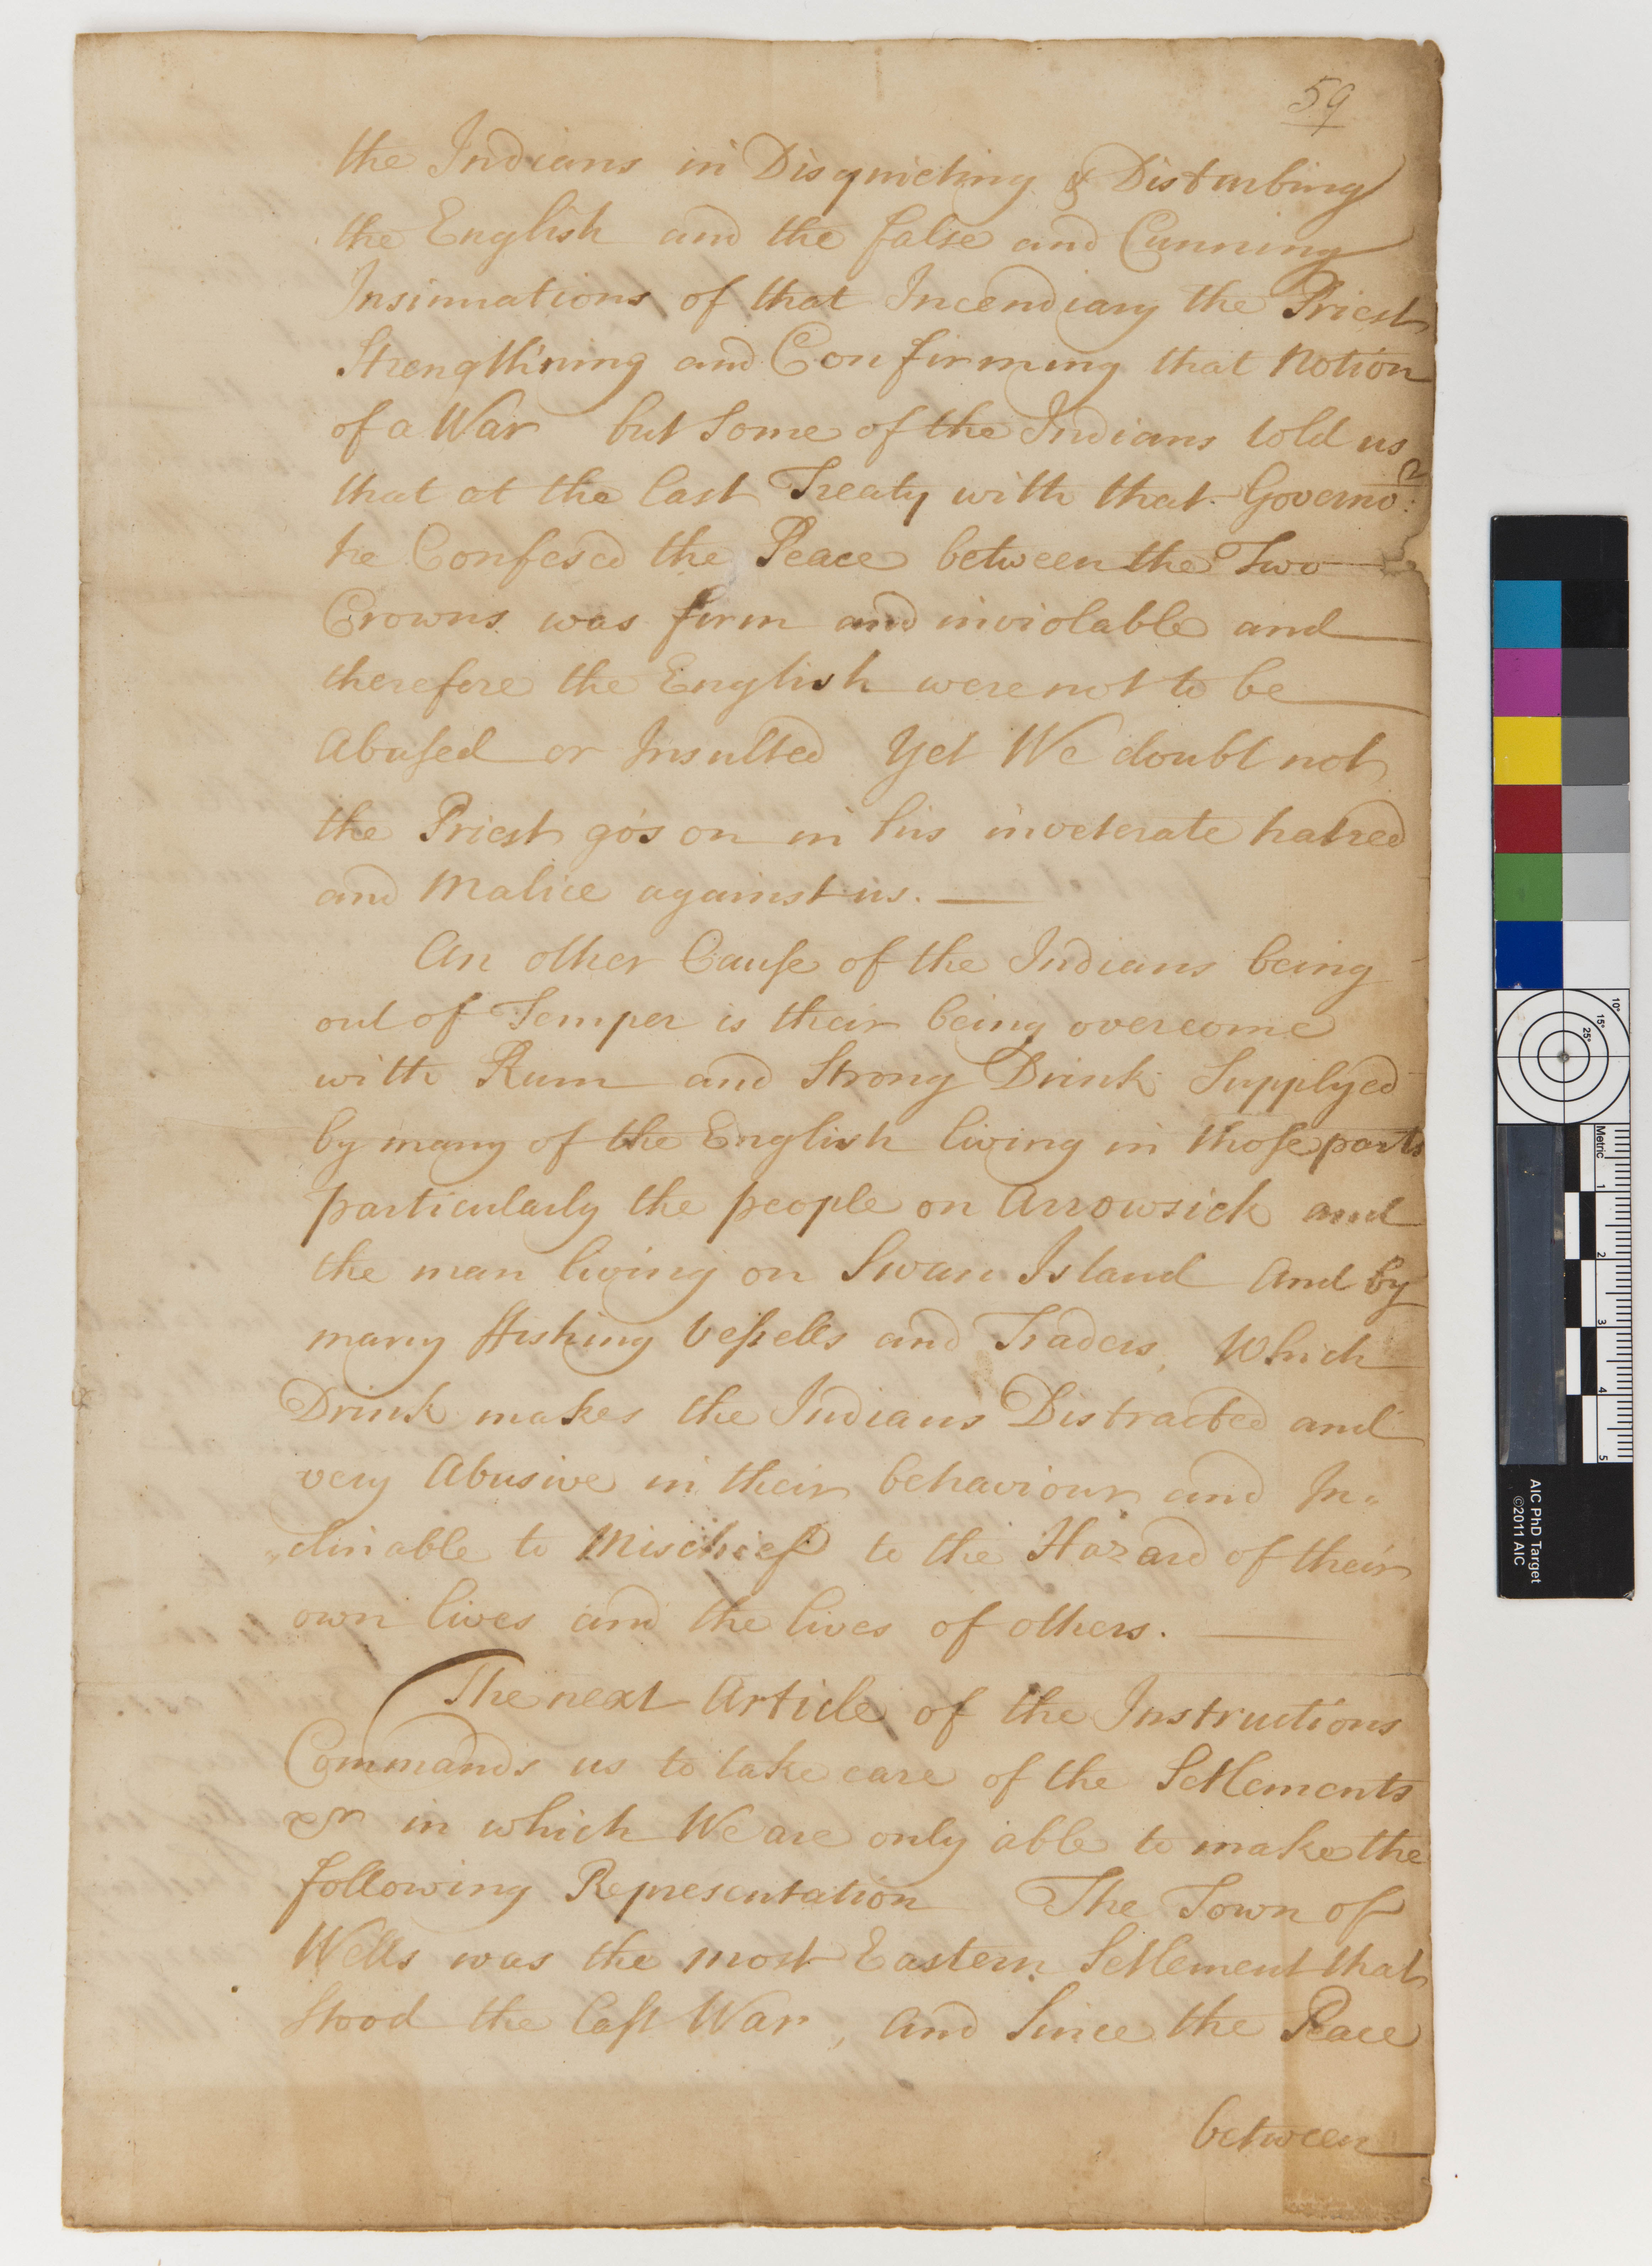 59
the Indians in Disquieting & Disturbing
the English and the false and Cunning
Insinuations of that Incendiary the Priest
Strengthining and Confirming that Notion
of a War but Some of the Indians told us
that at the last Treaty with that Governor.
he Confesed the Peace between the Two
Crowns was firm and inviolable and
therefore the English were not to be
Abused or Insulted Yet We doubt not
the Priest go's on in his inveterate hatred
and Malice against us.
An other Cause of the Indians being
out of Temper is their being overcome
with Rum and Strong Drink Supplyed
by many of the English living in those parts
particularly the people on Arrowsick and
the man living on Swan Island And by
many ffishing Vessells and Traders, Which
Drink makes the Indians Distracted and
very Abusive in their behaviour and In=
=clinable to Mischief to the Hazard of their
own lives and the lives of others.
The next Article of the Instructions
Commands us to take care of the Setlements
&r in which We are only able to make the
following Representation The Town of
Wells was the most Eastern Setlement that
Stood the last War, And Since the Peace
between
AIC PhD Target
©2011 AIC
Metric
1
2
3
4
5
10°
15°
25°